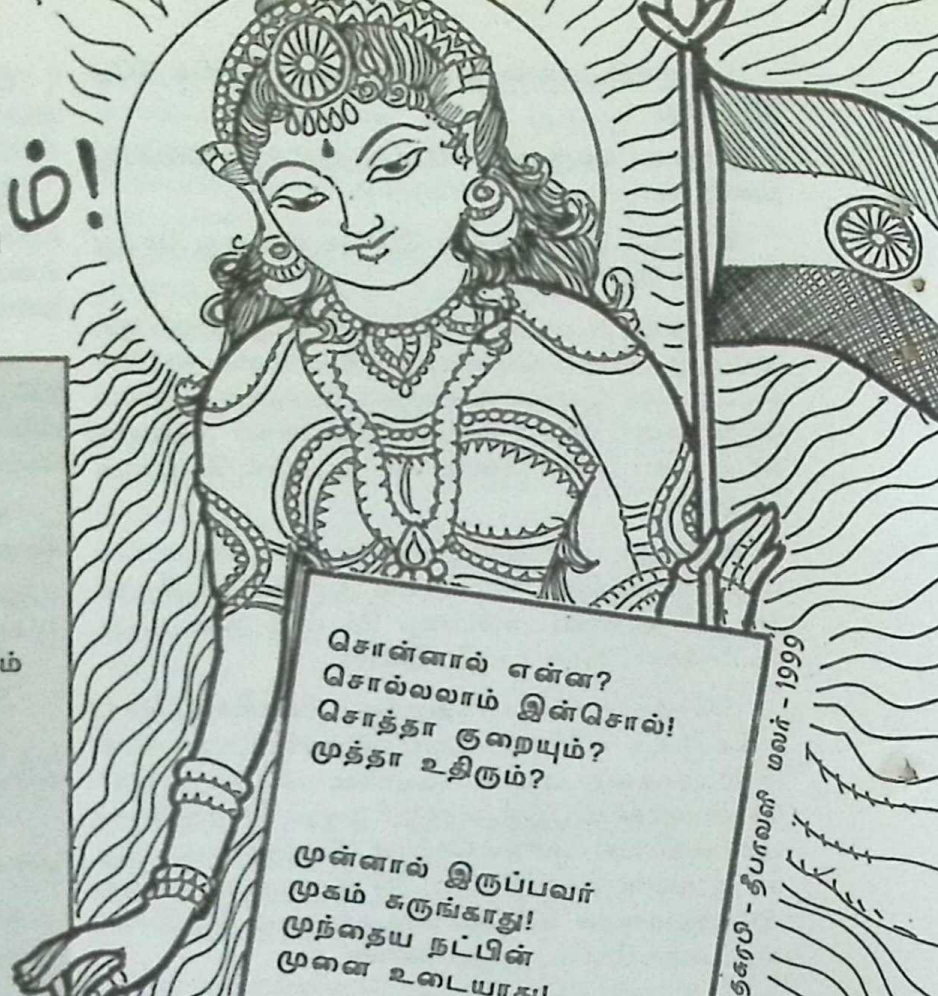 ம்!
ம்
சொன்னால் என்ன?
சொல்லலாம் இன்சொல்!
சொத்தா குறையும்?
முத்தா உதிரும்?
முன்னால் இருப்பவர்
முகம் சுருங்காது!
முந்தைய நட்பின்
முனை உடையாது!
தீபாவளி மலர் - 1999